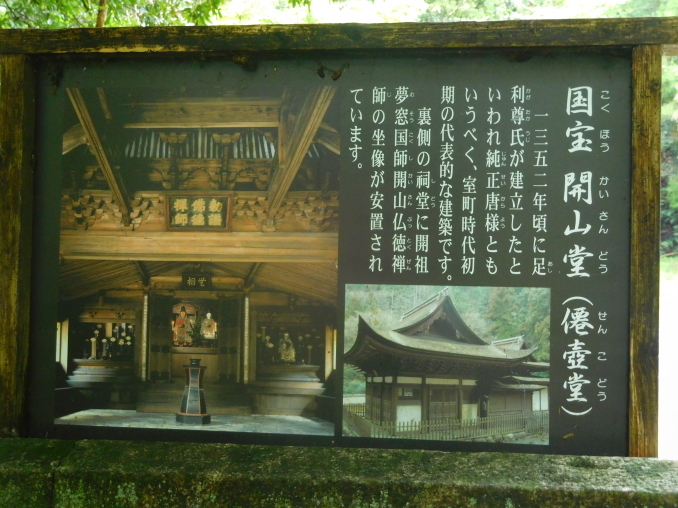 国宝 開山堂（僊壺堂）
こくほう かいさんどう せんこどう
一三五二年頃に足
利尊氏が建立したと
いわれ純正唐様とも
いうべく、室町時代初
期の代表的な建築です。
裏側の祠堂に開祖
夢窓国師開山仏徳禅
師の坐像が安置され
ています。
相覚